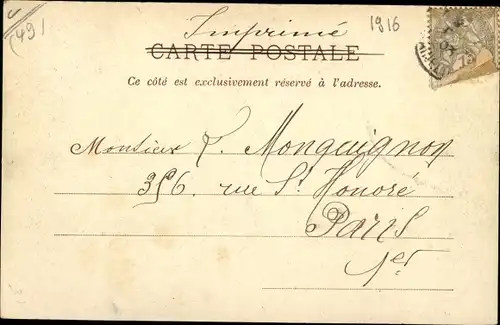 (49)
Imprimé
1916
CARTE POSTALE
Ce côté est exclusivement réservé à l'adresse.
Monsieur P. Monguignon
356. rue St. Honoré
Paris
1er